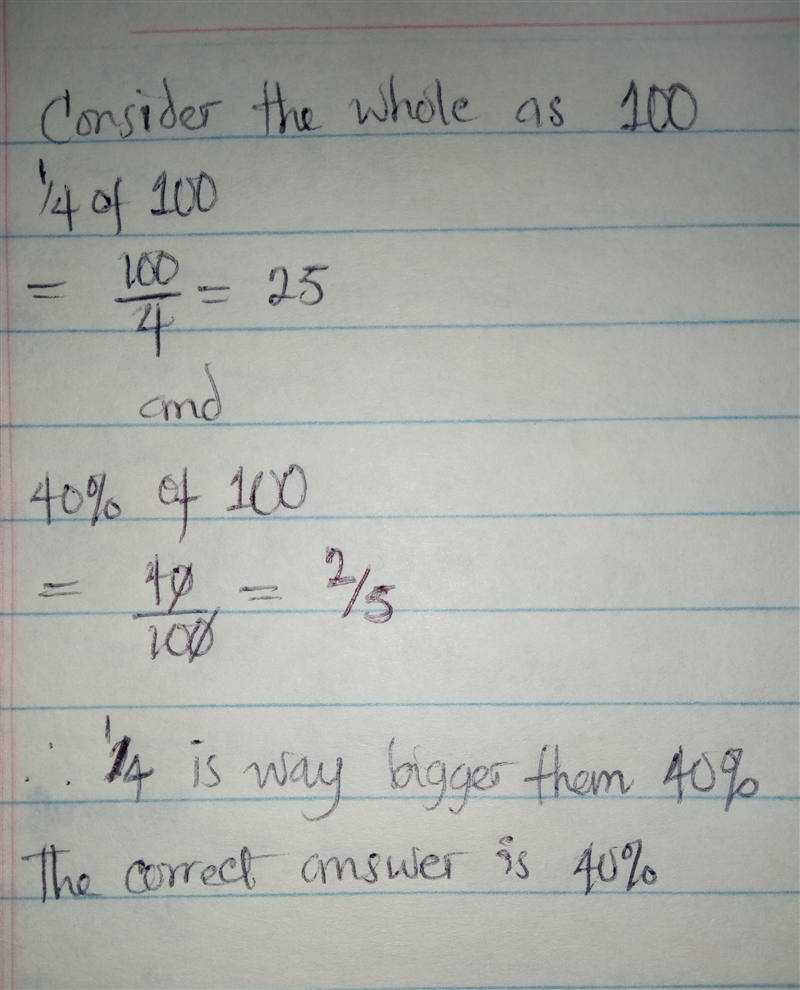 Consider the whole as 100
1/4 of 100
= 100/4 = 25
and
40% of 100
= 40/100 = 2/5
∴ 1/4 is way bigger than 40%
The correct answer is 40%